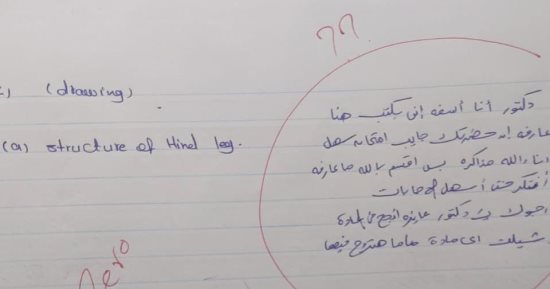 ؟؟
(drawing)
(a) structure of Hind leg.
دكتور أنا أسفه إني بكتب هنا
عارفه إنه حضرتك جايب امتحان سهل
انا والله مذاكره بس اقسم بالله ما عارفه
أفتكر حتى أسهل الاجابات
ارجوك يا دكتور عايزه انجح في المادة
شيلت اي مادة ماما هتروح فيها